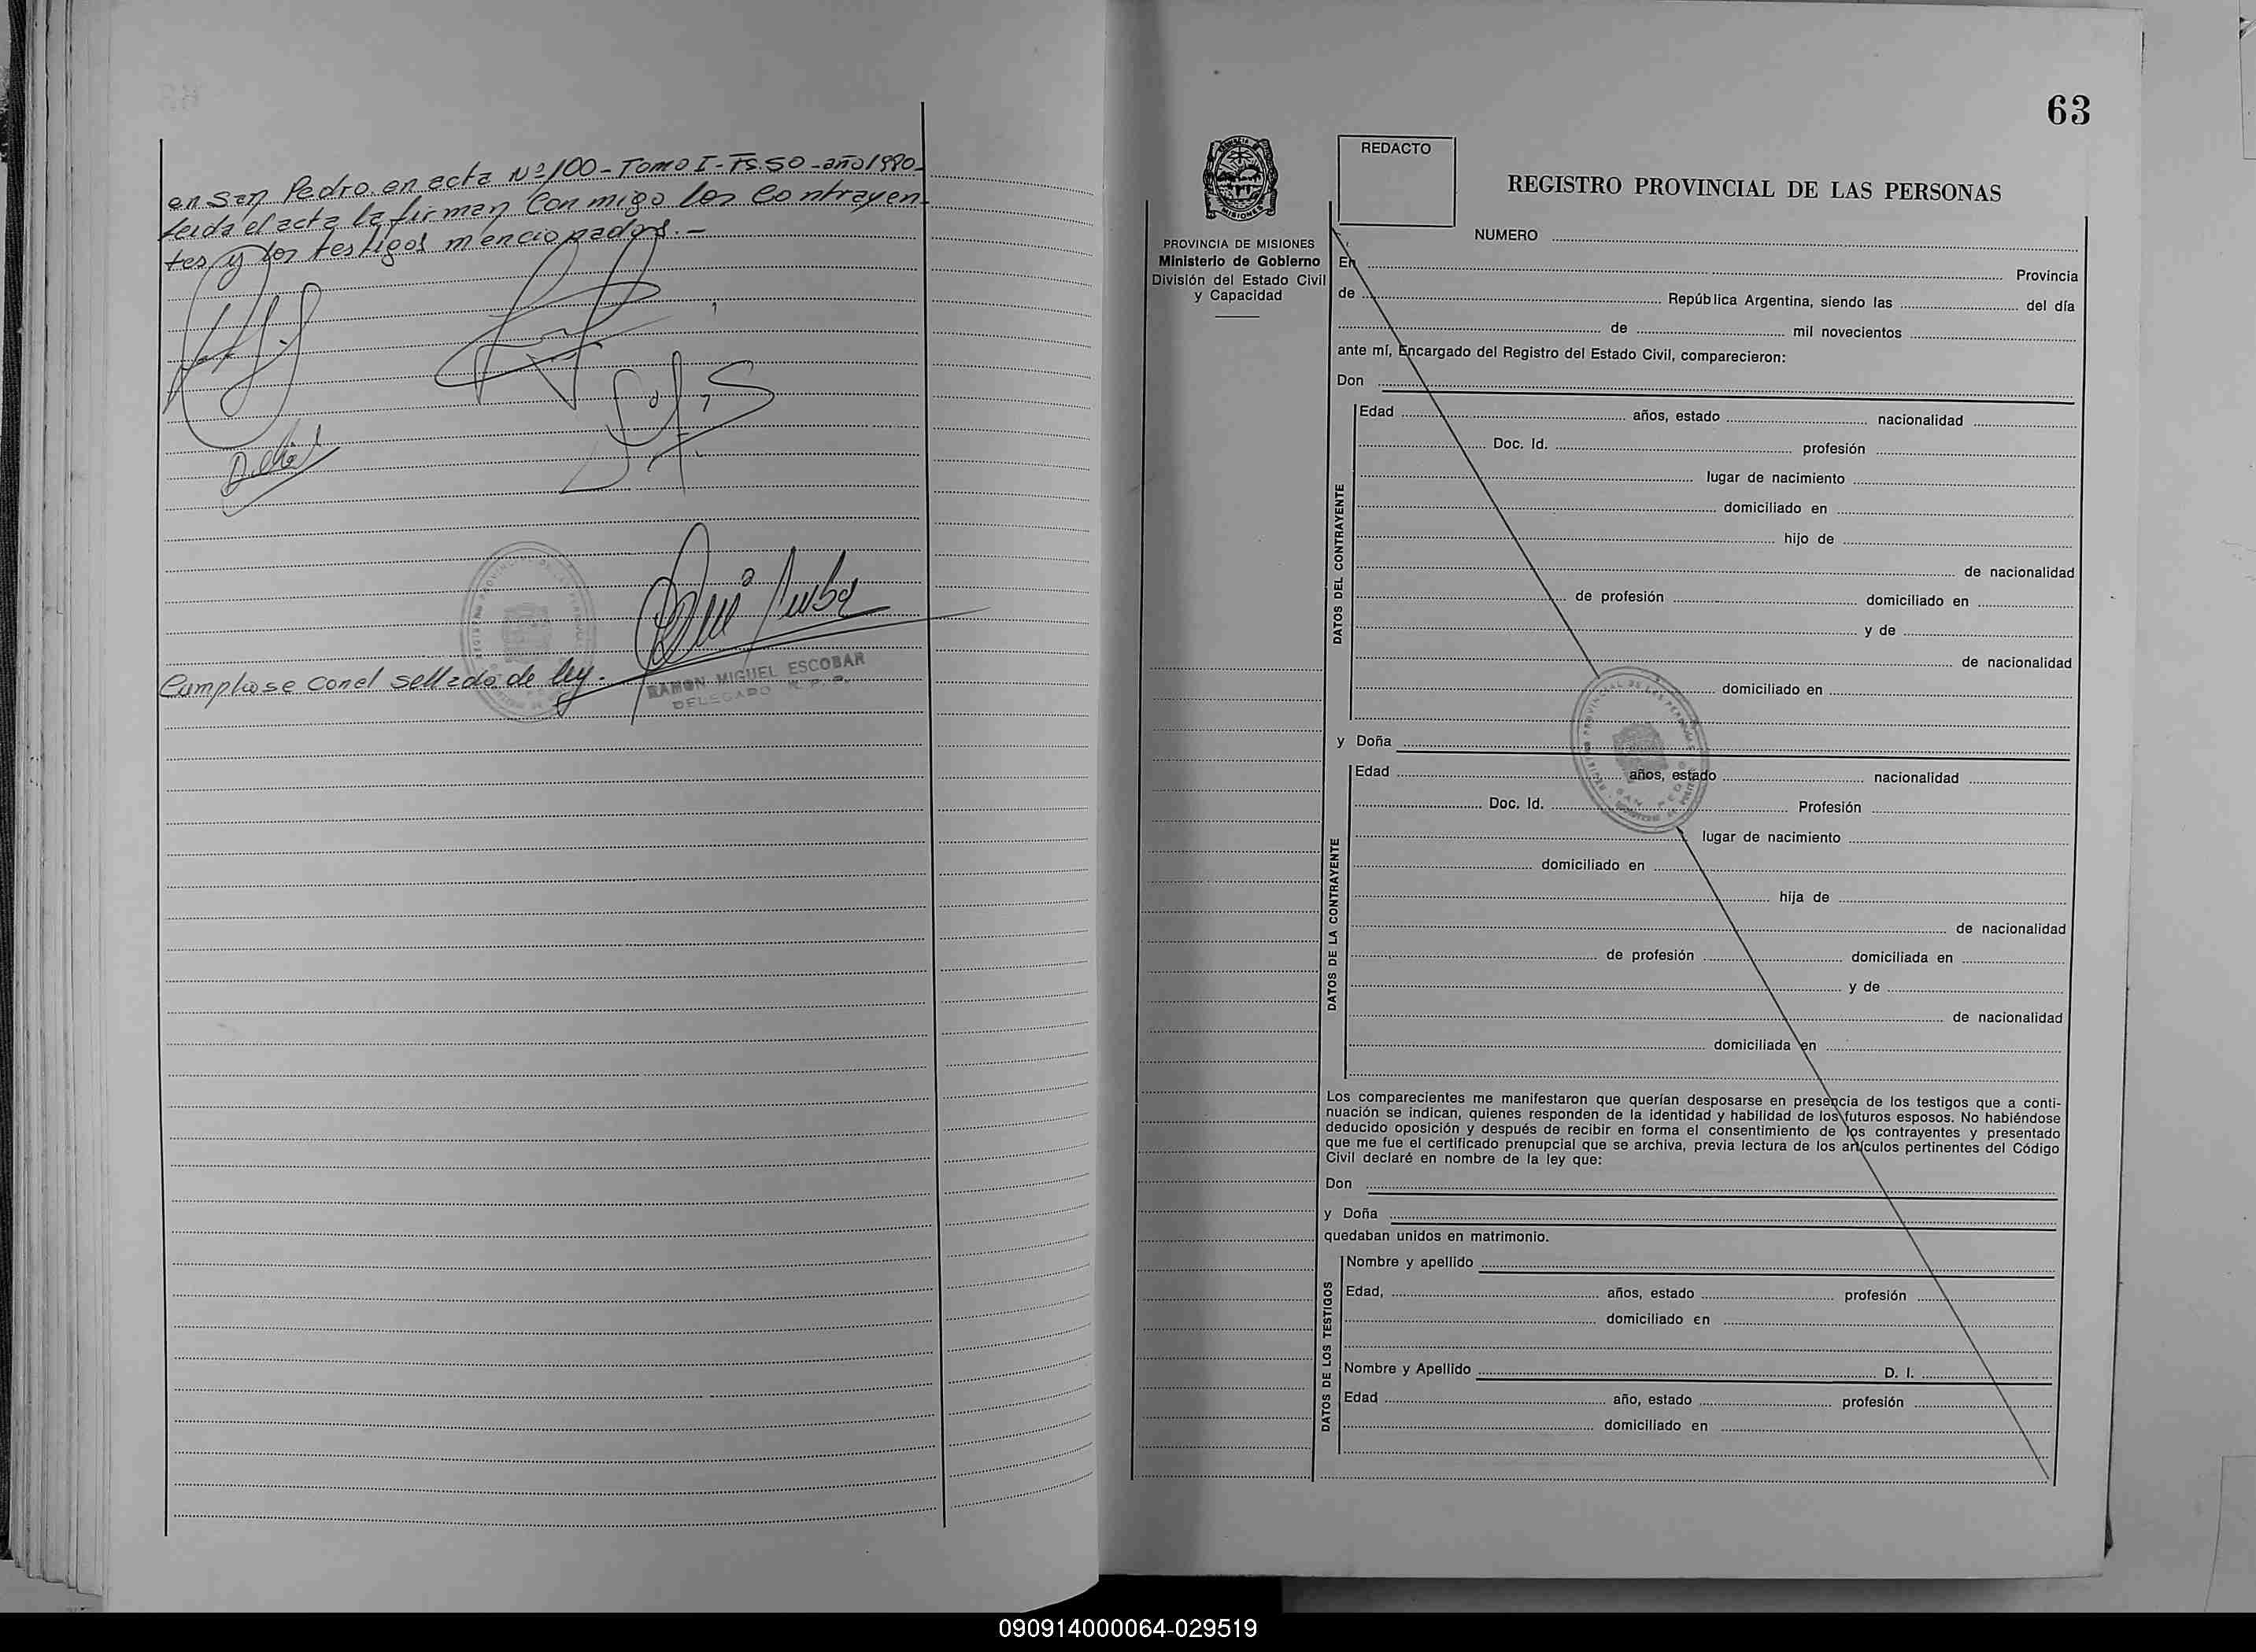 en San Pedro en acta Nº 100 - Tomo I - Fs. 50 - año 1980 -
leida el acta la firman conmigo los contrayen-
tes y los testigos mencionados. -
Cumplase con el sellado de ley.
RAMON MIGUEL ESCOBAR
DELEGADO R. P. P.
63
REDACTO
REGISTRO PROVINCIAL DE LAS PERSONAS
PROVINCIA DE MISIONES
Ministerio de Gobierno
División del Estado Civil
y Capacidad
NUMERO
En Provincia
de República Argentina, siendo las del día
de mil novecientos
ante mí, Encargado del Registro del Estado Civil, comparecieron:
Don
DATOS DEL CONTRAYENTE
Edad años, estado nacionalidad
Doc. Id. profesión
lugar de nacimiento
domiciliado en
hijo de
de nacionalidad
de profesión domiciliado en
y de
de nacionalidad
domiciliado en
y Doña
DATOS DE LA CONTRAYENTE
Edad años, estado nacionalidad
Doc. Id. Profesión
lugar de nacimiento
domiciliado en
hija de
de nacionalidad
de profesión domiciliada en
y de
de nacionalidad
domiciliada en
Los comparecientes me manifestaron que querían desposarse en presencia de los testigos que a conti-
nuación se indican, quienes responden de la identidad y habilidad de los futuros esposos. No habiéndose
deducido oposición y después de recibir en forma el consentimiento de los contrayentes y presentado
que me fue el certificado prenupcial que se archiva, previa lectura de los artículos pertinentes del Código
Civil declaré en nombre de la ley que:
Don
y Doña
quedaban unidos en matrimonio.
DATOS DE LOS TESTIGOS
Nombre y apellido
Edad, años, estado profesión
domiciliado en
Nombre y Apellido D. I.
Edad año, estado profesión
domiciliado en
090914000064-029519